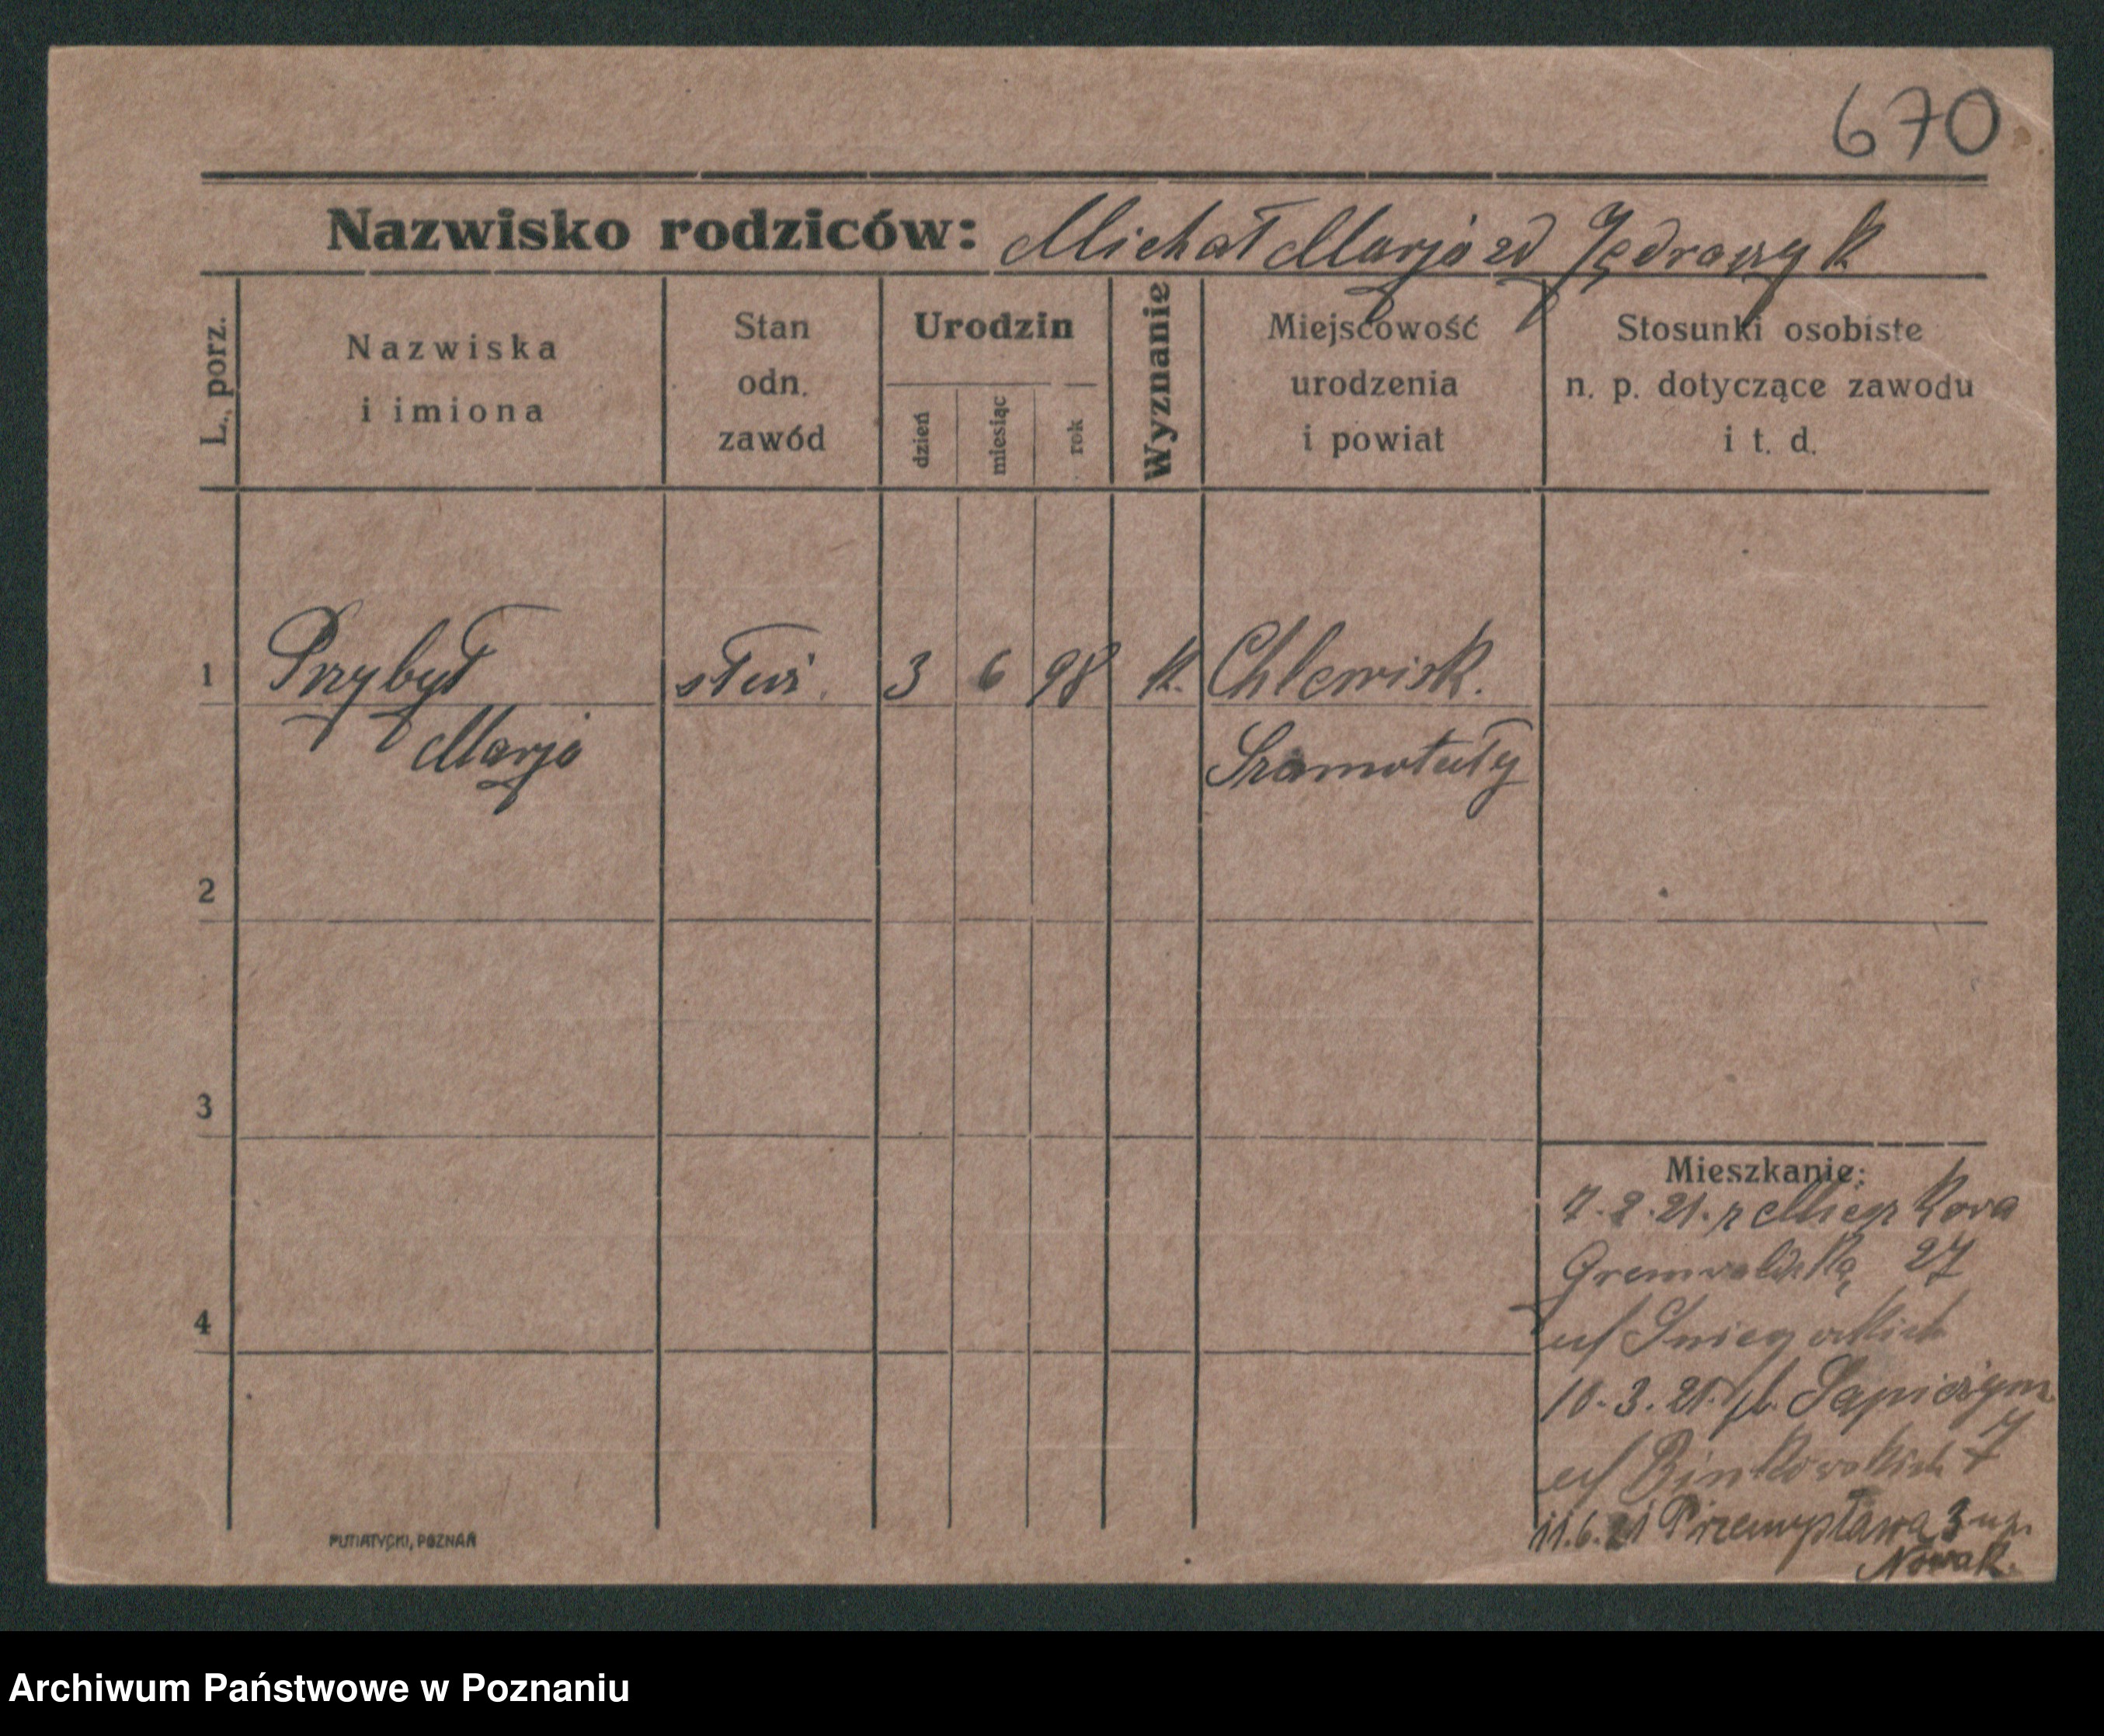 670
Nazwisko rodziców: Michał Marja zd Jędraszyk
L. porz.
Nazwiska i imiona
Stan odn. zawód
Urodzin
dzień
miesiąc
rok
Wyznanie
Miejscowość urodzenia i powiat
Stosunki osobiste n. p. dotyczące zawodu i t. d.
1 Przybył służ. 3 6 98 k. Chlewisk.
Marja Szamotuły
2
3
4
Mieszkanie:
7.2.21. z
Grunwaldzka 27
u/
10.3.21. pl. Sapieżyn
u/ Binkowskich 7
11.6.21 Przemysława 3 u p.
Nowak.
PUTIATYCKI, POZNAŃ
Archiwum Państwowe w Poznaniu